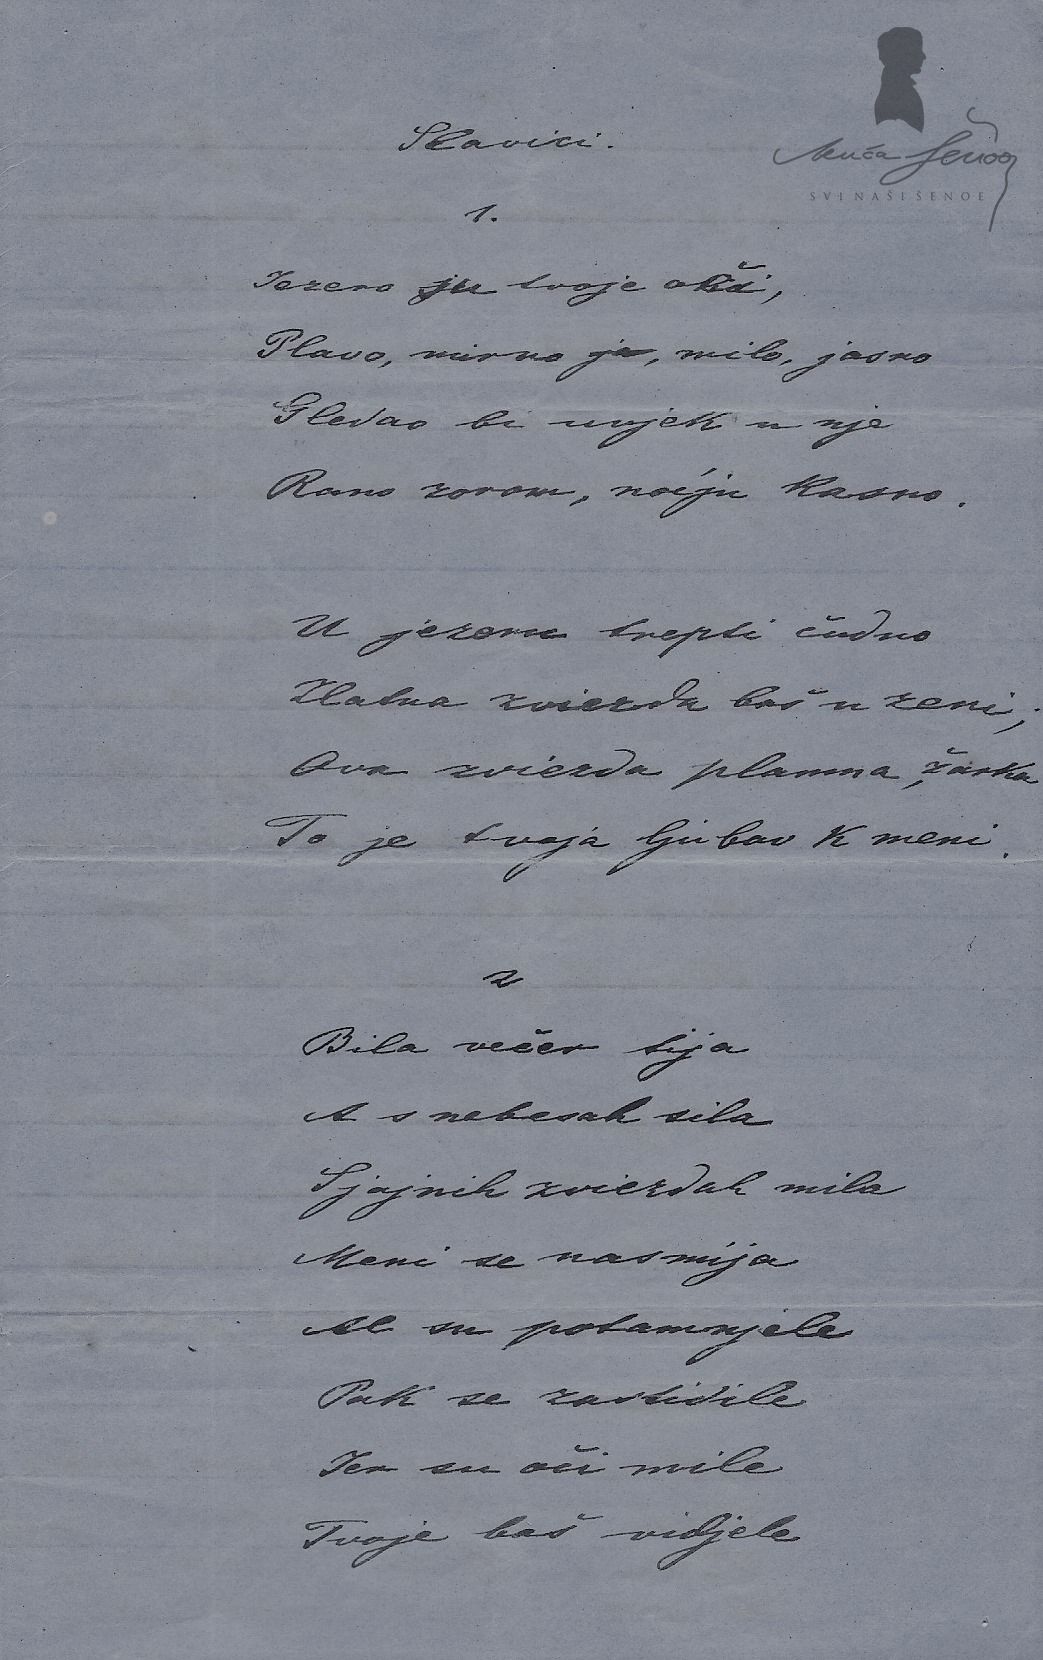 Slavici.
1.
Jezero je tvoje oči,
Plavo, mirno je, milo, jasno
Gledao bi uvjek u nje
Rano zorom, noćju kasno.
U jezeru trepti čudno
Zlatna zviezda baš u zeni,
Ova zviezda plamna, žarka
To je tvoja ljubav k meni.
2
Bila večer tija
A s nebesah sila
Sjajnih zviezdah mila
Meni se nasmija
Al su potamnjele
Pak se zastidile
Jer su oči mile
Tvoje baš vidjele
Šenoa
SVI NAŠI ŠENOE